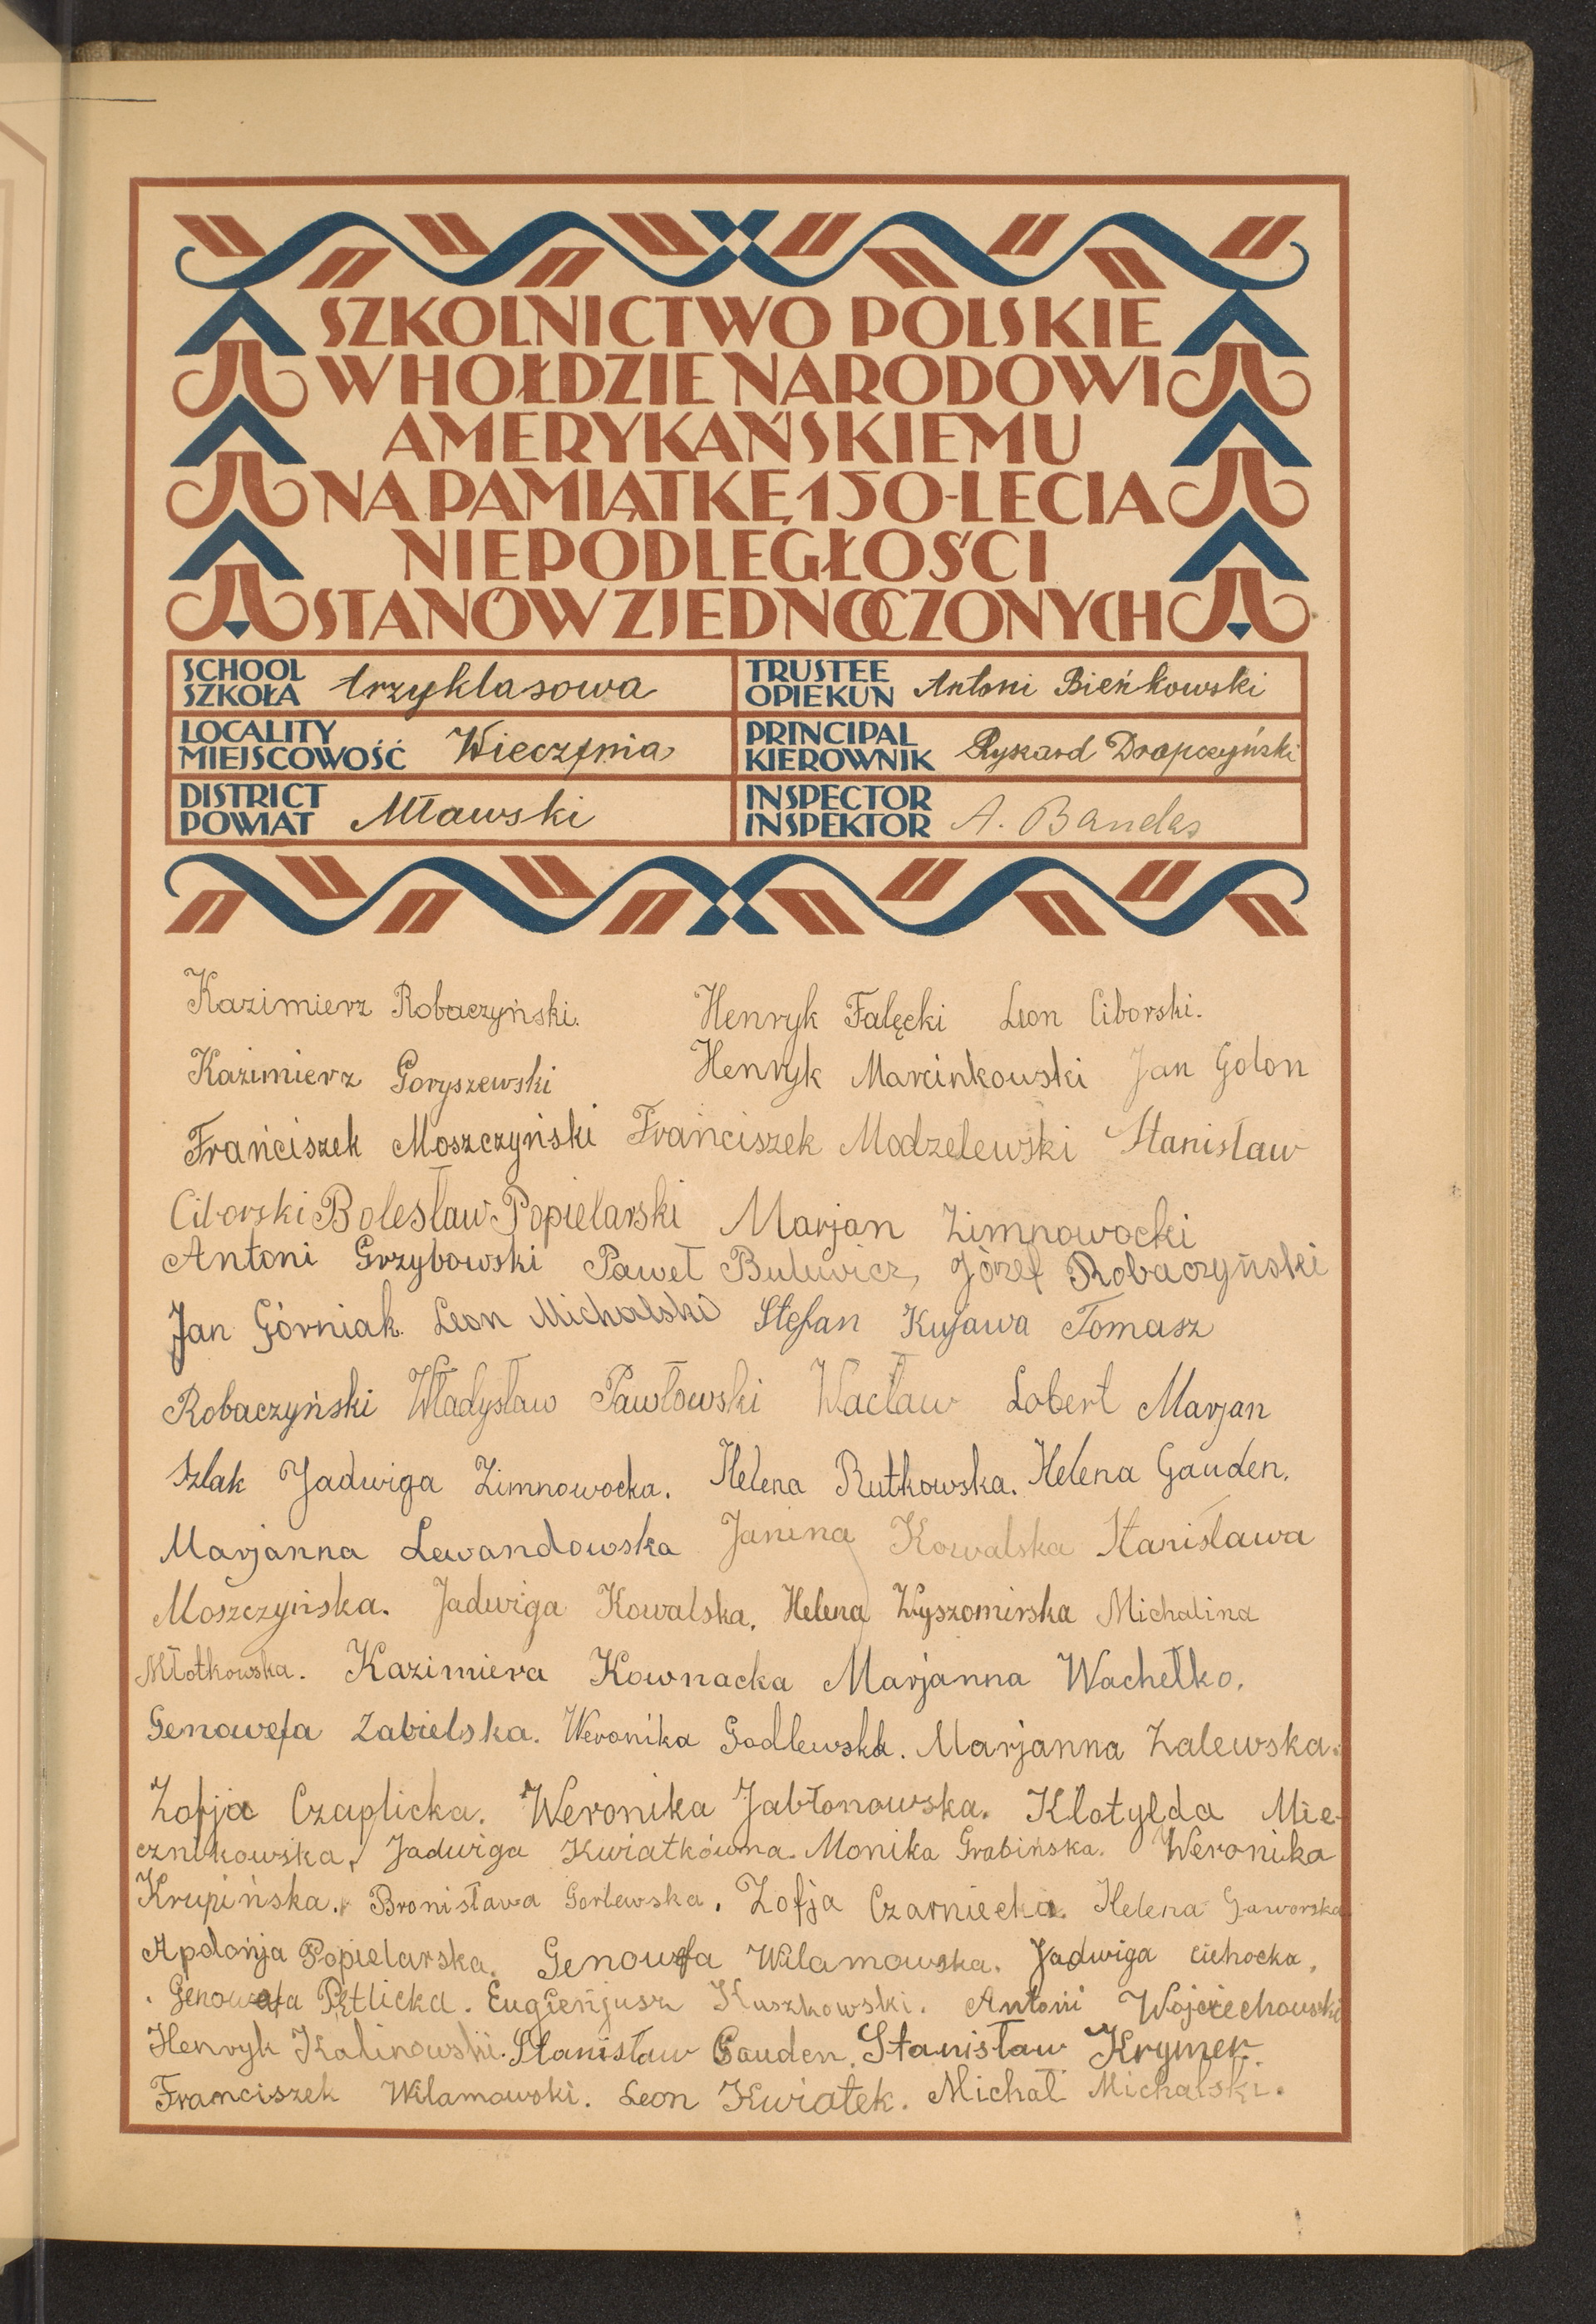 SZKOLNICTWO POLSKIE
W HOŁDZIE NARODOWI
AMERYKAŃSKIEMU
NA PAMIĄTKĘ 150-LECIA
NIEPODLEGŁOŚCI
STANÓW ZJEDNOCZONYCH
SCHOOL
SZKOŁA trzyklasowa
TRUSTEE
OPIEKUN Antoni Bieńkowski
LOCALITY
MIEJSCOWOŚĆ Wieczfnia
PRINCIPAL
KIEROWNIK Ryszard Drapczyński
DISTRICT
POWIAT Mławski
INSPECTOR
INSPEKTOR A. Bandes
Kazimierz Robaczyński. Henryk Falęcki Leon Ciborski.
Kazimierz Goryszewski Henryk Marcinkowski Jan Golon
Frańciszek Moszczyński Frańciszek Modzelewski Stanisław
Ciborski Bolesław Popielarski Marjan Zimnowocki
Antoni Grzybowski Paweł Bulewicz, Józef Robaczyński
Jan Górniak. Leon Michalski Stefan Kujawa Tomasz
Robaczyński Władysław Pawłowski Wacław Lobert Marjan
Szlak Jadwiga Zimnowocka. Helena Rutkowska. Helena Gauden.
Marjanna Lewandowska Janina Kowalska Stanisława
Moszczyńska. Jadwiga Kowalska. Helena Wyszomirska Michalina
Młotkowska. Kazimiera Kownacka Marjanna Wachełko.
Genowefa Zabielska. Weronika Godlewska. Marjanna Zalewska.
Zofja Czaplicka. Weronika Jabłonowska. Klotylda Mie-
cznikowska, Jadwiga Kwiatkówna. Monika Grabińska. Weronika
Krupińska. Bronisława Gorlewska. Zofja Czarniecka. Helena Gaworska
Apolońja Popielarska. Genowefa Wilamowska. Jadwiga Cichocka,
Genowefa Pętlicka. Eugieńjusz Kuszkowski. Antoni Wojciechowski
Henryk Kalinowski. Stanisław Gauden. Stanisław Krymer.
Franciszek Wilamowski. Leon Kwiatek. Michał Michalski.